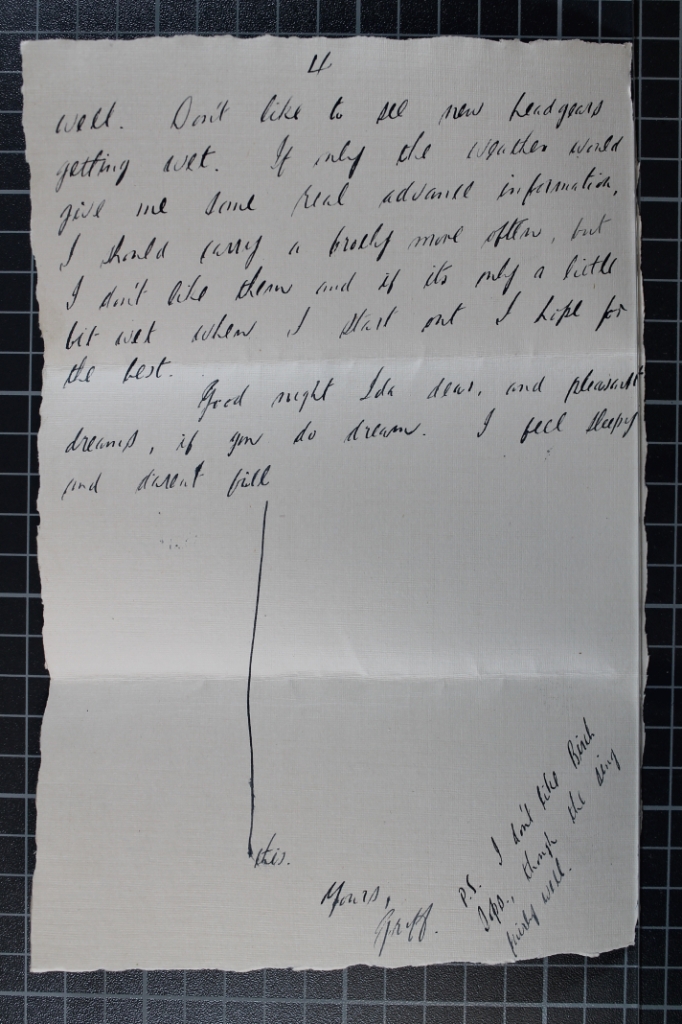 4
well. Don't like to see new headgears
getting wet. If only the weather would
give me some real advance information,
I should carry a brolly more often, but
I don't like them and if its only a little
bit wet when I start out I hope for
the best.
Good night Ida dear, and pleasant
dreams, if you do dream. I feel sleepy
and daren't fill
this.
Yours,
Griff.
P.S. I don't like Birch
though the sing
fairly well.